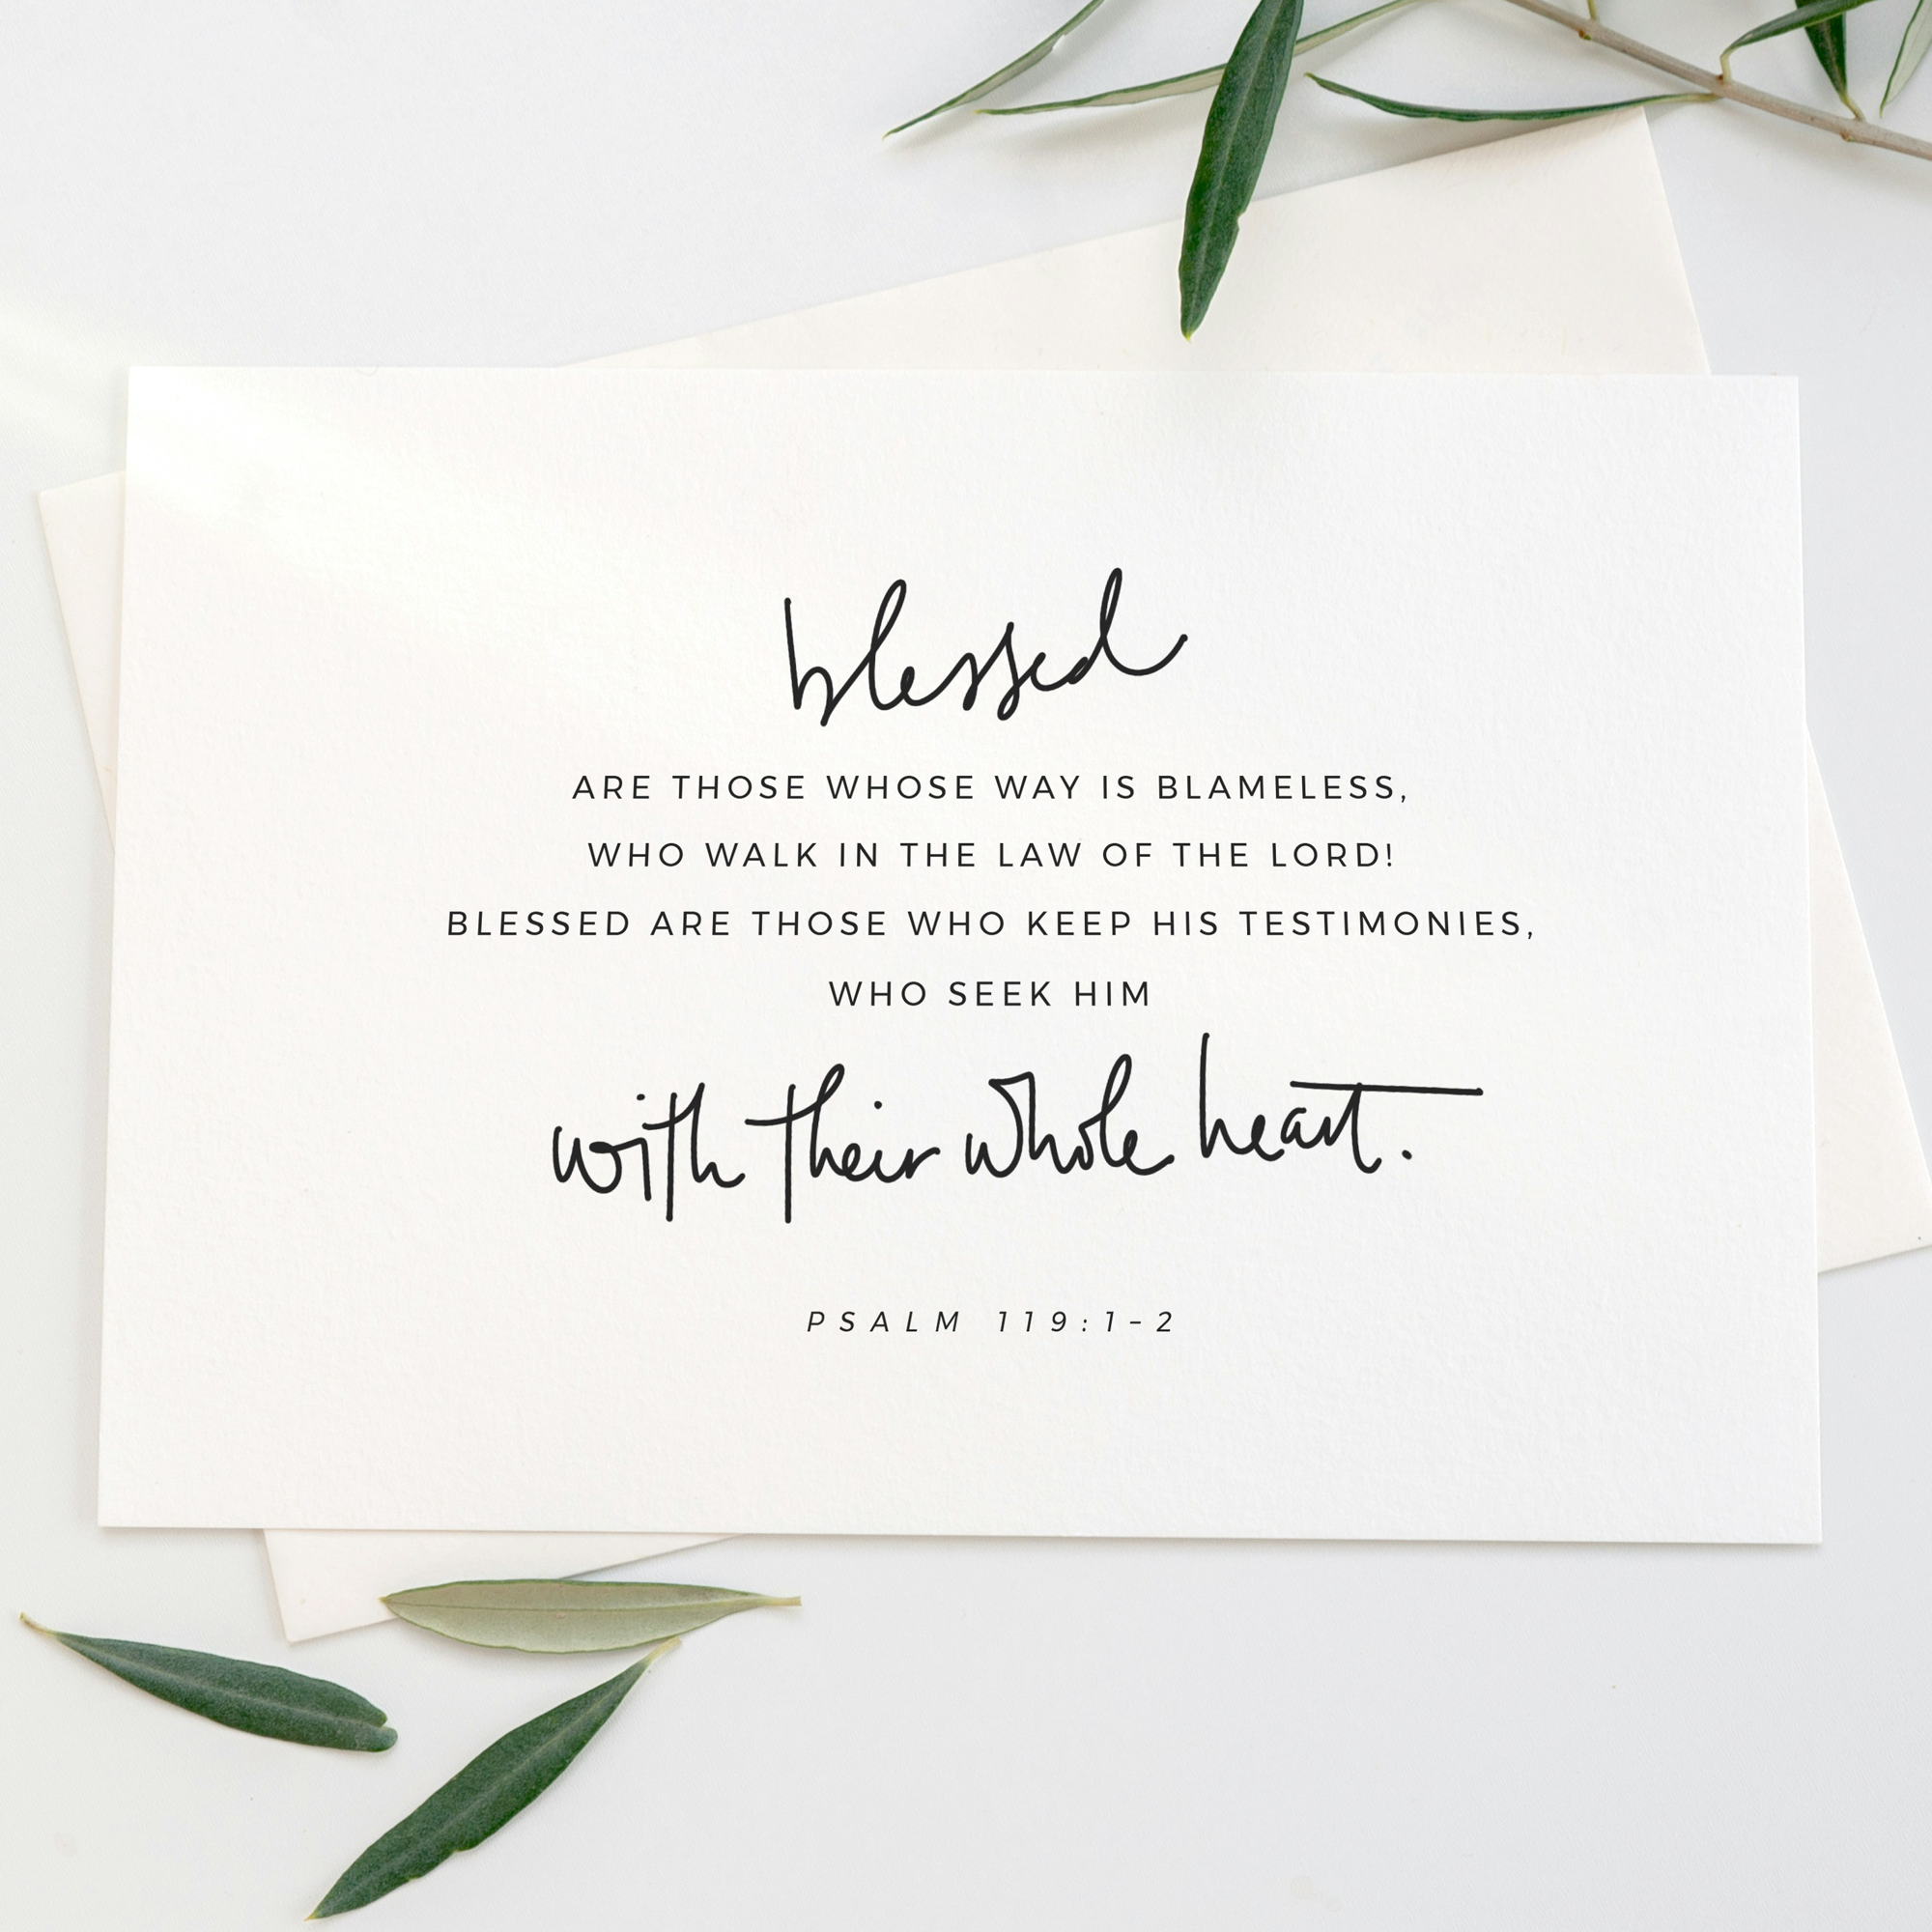 blessed
ARE THOSE WHOSE WAY IS BLAMELESS,
WHO WALK IN THE LAW OF THE LORD!
BLESSED ARE THOSE WHO KEEP HIS TESTIMONIES,
WHO SEEK HIM
with their whole heart.
PSALM 119:1-2